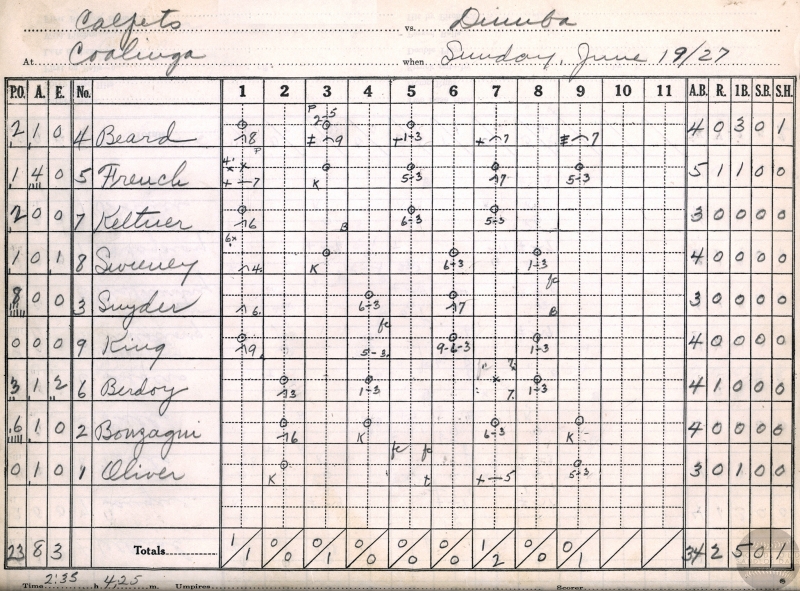 Calpets vs. Dinuba
At Coalinga when Sunday, June 19/27
P.O. A. E. No. 1 2 3 4 5 6 7 8 9 10 11 A.B. R. 1B. S.B. S.H.
2 1 0 4 Beard 4 0 3 0 1
1 4 0 5 French K 5-3 5-3 5 1 1 0 0
2 0 0 7 Keltner B 6-3 5-3 3 0 0 0 0
1 0 1 8 Sweeney K 6-3 1-3 4 0 0 0 0
8 0 0 3 Snyder 6-3 B 3 0 0 0 0
0 0 0 9 King 5-3 9-6-3 1-3 4 0 0 0 0
3 1 2 6 Berdoy 1-3 1-3 4 1 0 0 0
6 1 0 2 Bonzagni K 6-3 K 4 0 0 0 0
0 1 0 1 Oliver K 5-3 3 0 1 0 0
23 8 3 Totals 1/1 0/0 0/1 0/0 0/0 0/0 1/2 0/0 0/1 34 2 5 0 1
Time 2:35 h 4,25 m. Umpires Scorer